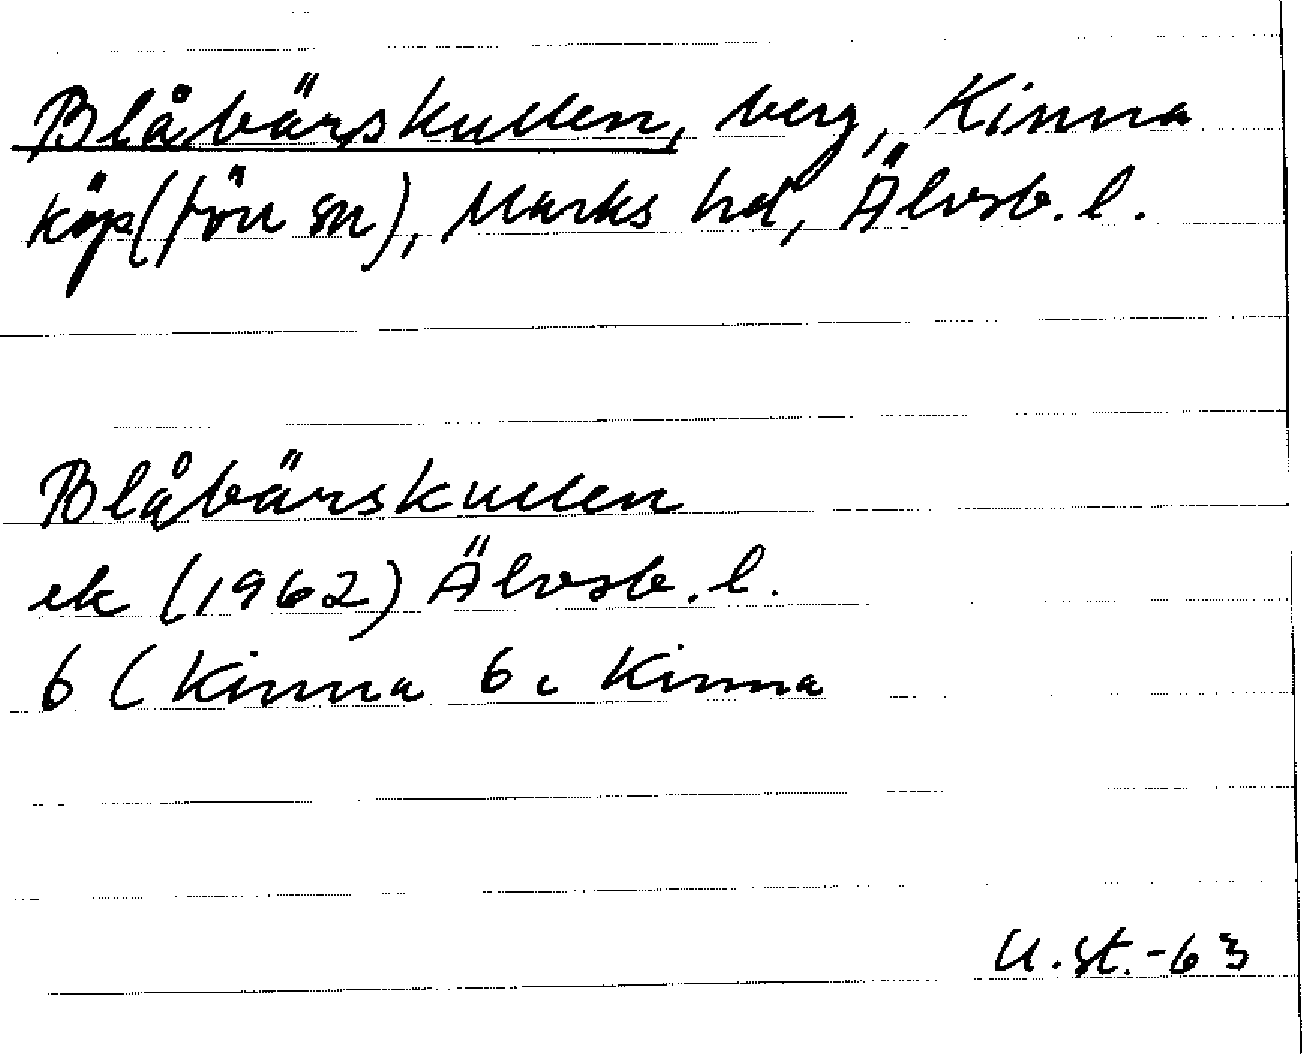 Blåbärskullen, berg, Kinna
köp (förr sn), Marks hd, Älvsb. l.
Blåbärskullen
ek (1962) Älvsb. l.
6 (Kinna 6c Kinna
U.st.-63